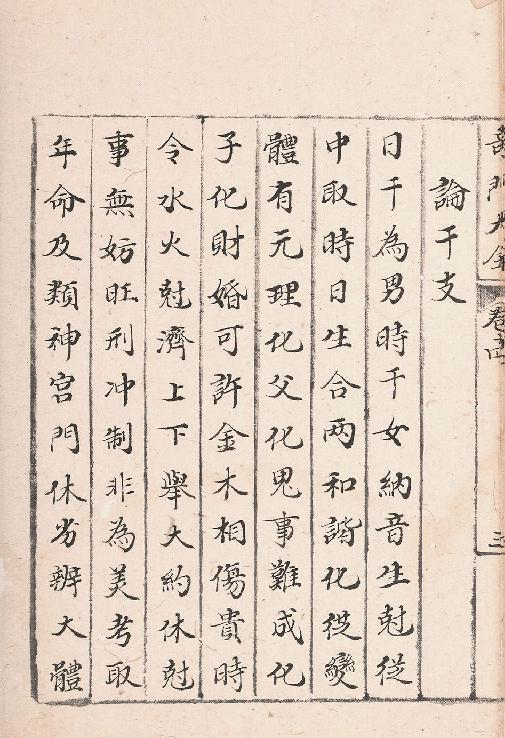 論干支
日干為男時干女納音生尅從
中取時日生合两和諧化從變
體有元理化父化鬼事難成化
子化財婚可許金木相傷貴時
令水火尅濟上下舉大約休尅
事無妨旺刑冲制非為美考取
年命及類神宮門休劣辨大體